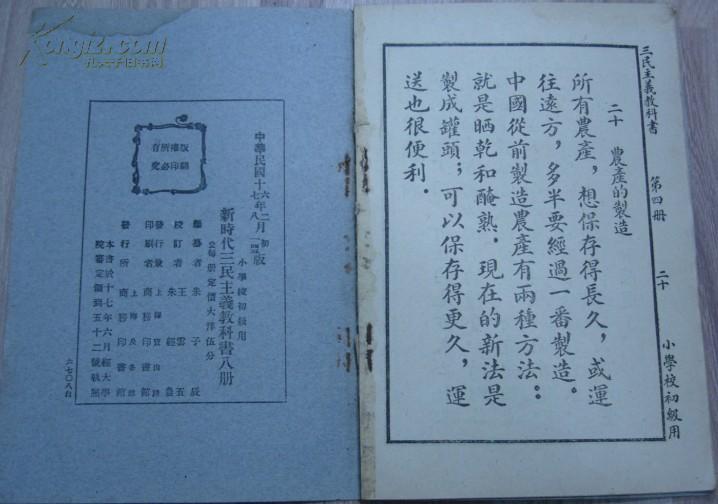 三民主義教科書
第四冊
二十
小學校初級用
二十 農產的製造
所有農產，想保存得長久，或運
往遠方，多半要經過一番製造。
中國從前製造農產有兩種方法：
就是晒乾和醃熟．現在的新法是
製成罐頭；可以保存得更久，運
送也很便利．
版權所有
翻印必究
中華民國十六年二月初版
小學校初級用
新時代三民主義教科書八册
每册定價大洋伍分
編纂者 朱子辰
校訂者 王雲五 朱經農
發行兼印刷者 上海寶山路 商務印書館
發行所 上海及各埠 商務印書館
本書於十七年六月經大學
院審定領到五十二號執照
六七〇八台
Kongfz.com
孔夫子旧书网